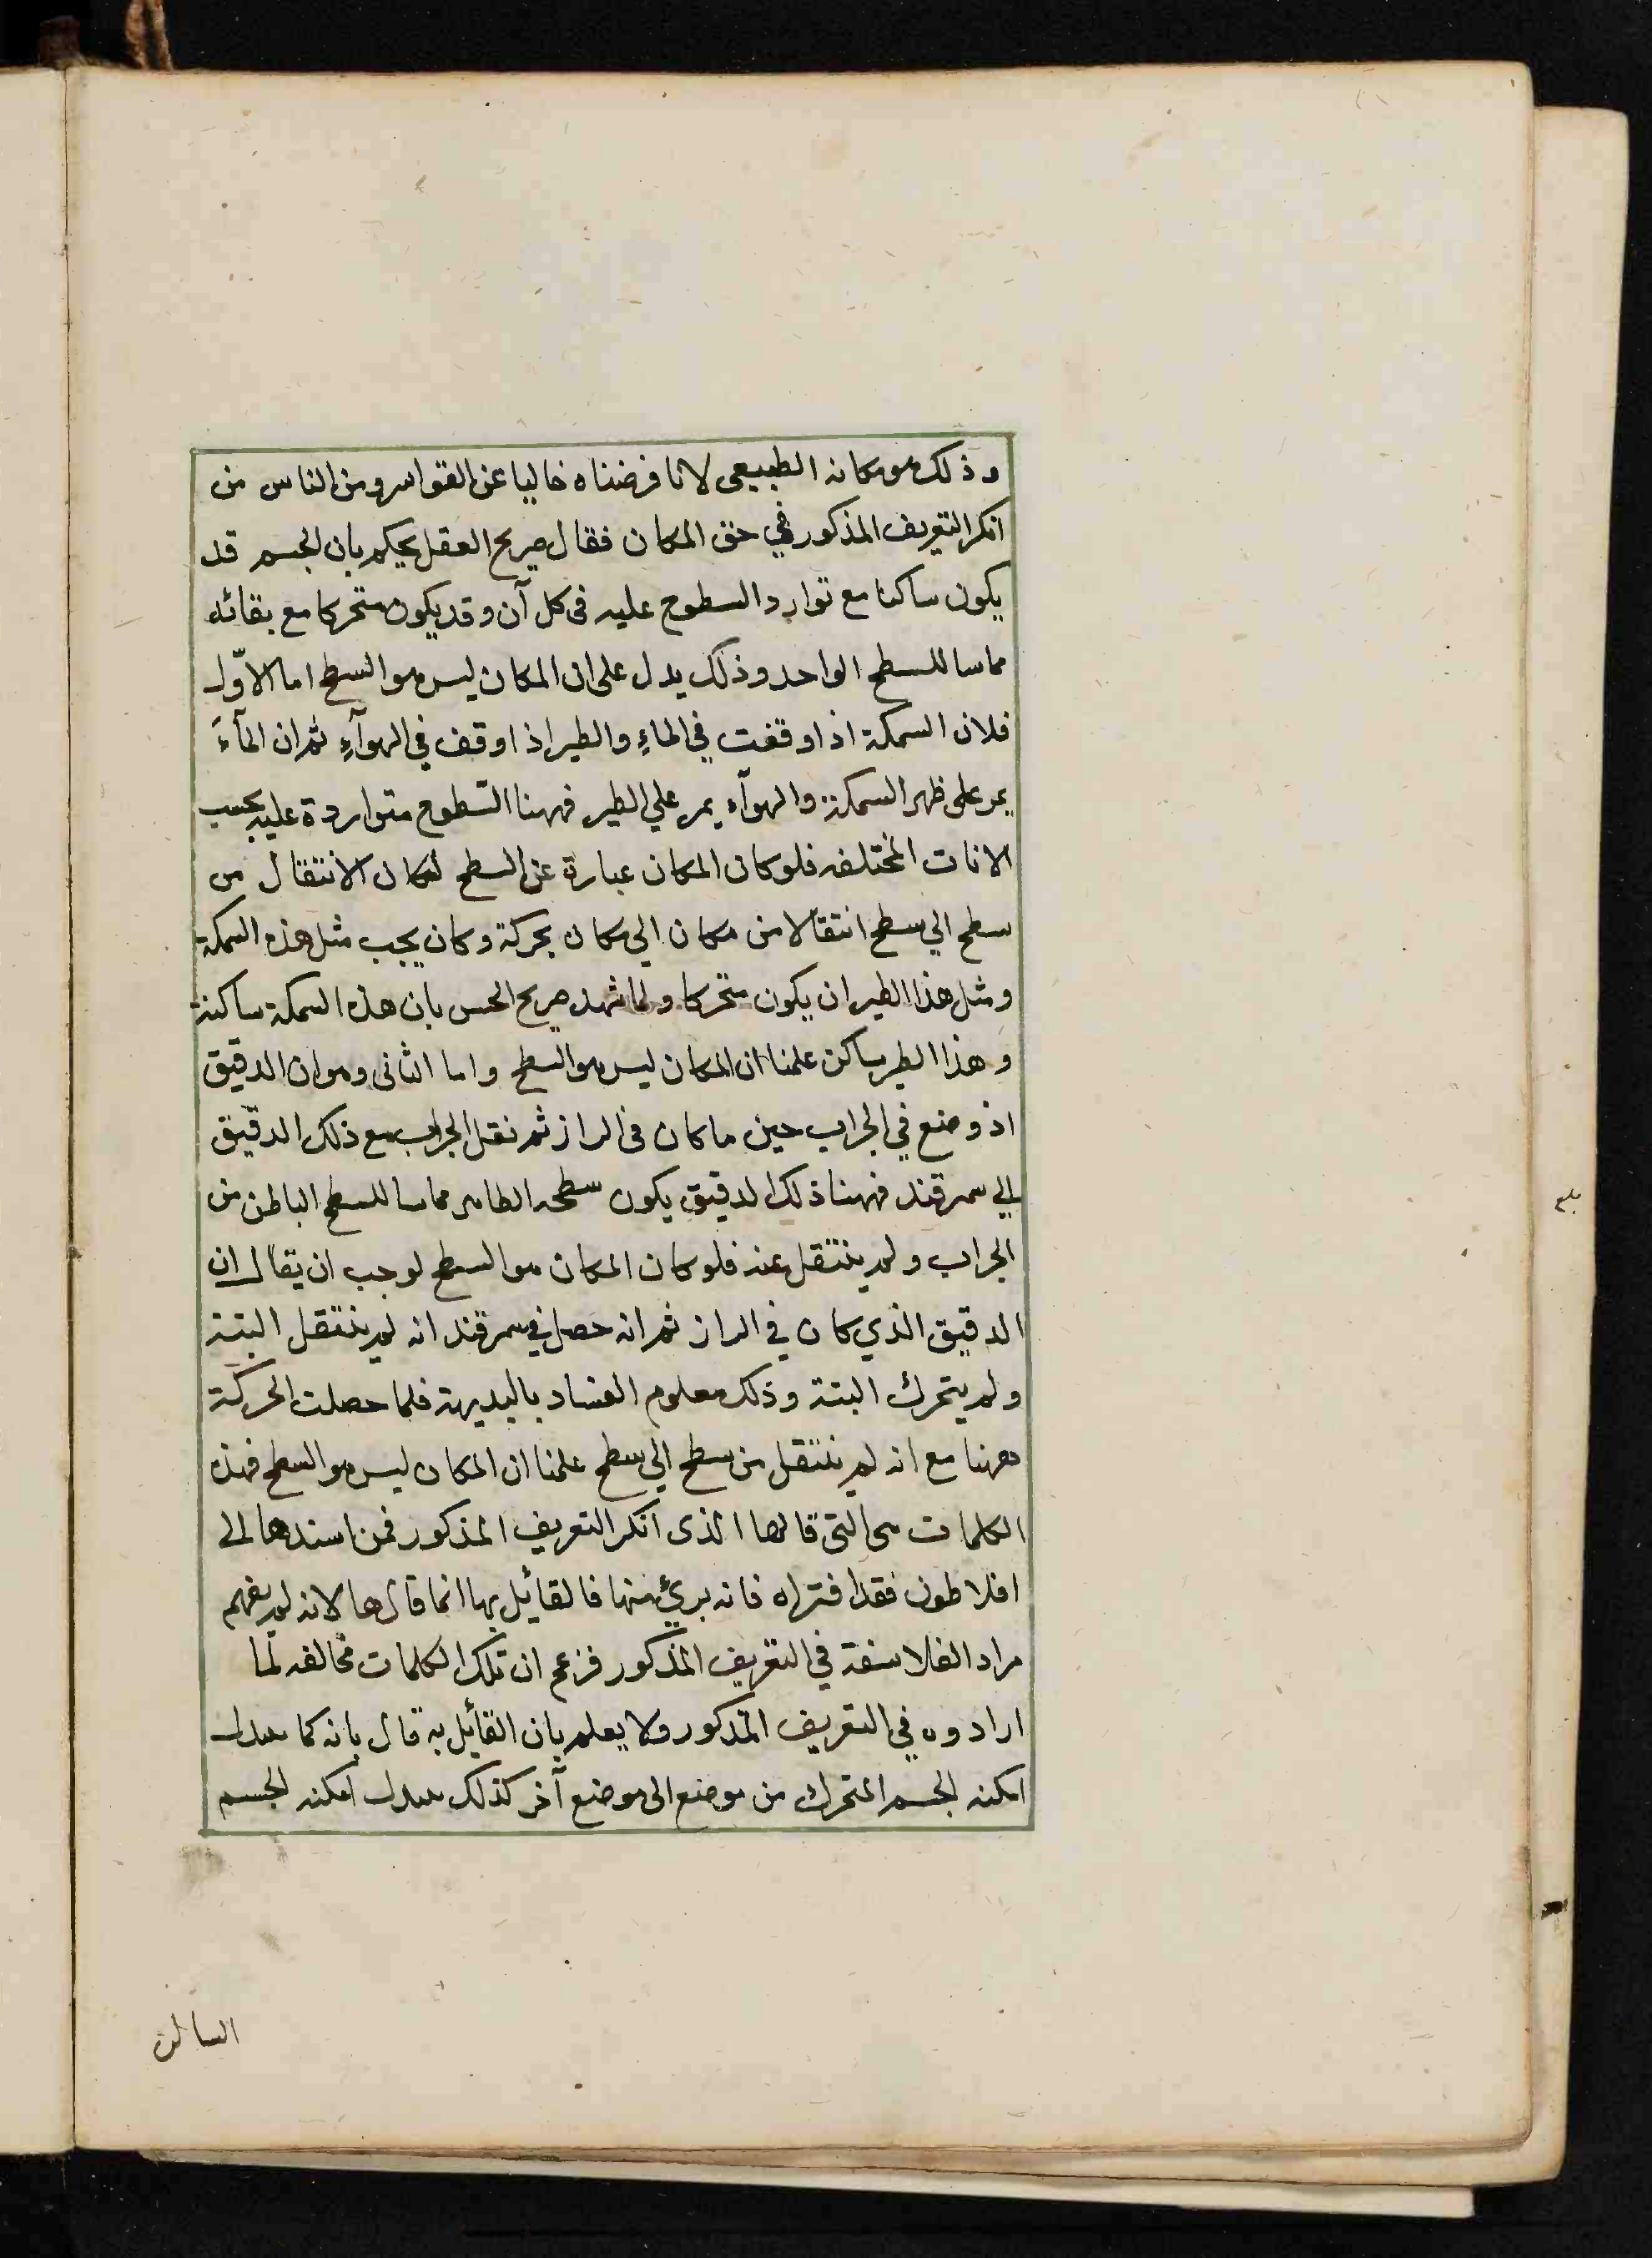 وذلك هو مكانه الطبيعى لانا فرضناه خاليا عن القواسر ومن الناس من
انكر التعريف المذكور في حق المكان فقال صريح العقل يحكم بان الجسم قد
يكون ساكنا مع توارد السطوح عليه فى كل آن وقد يكون متحركا مع بقائه
مماسا للسطح الواحد وذلك يدل على ان المكان ليس هو السطح اما الاوّل
فلان السمكة اذا وقفت في الماءِ والطير اذا وقف في الهوآءِ ثم ان المآءَ
يمر على ظهر السمكة والهوآء يمر علي الطير فههنا السّطوح متواردة عليه بحسب
الانات المختلفه فلو كان المكان عبارة عن السطح لكان الانتقال من
سطح الي سطح انتقالا من مكان الي مكان بحركة وكان يجب مثل هذه السمكة
ومثل هذا الطير ان يكون متحركا ولما شهد صريح الحس بان هذه السمكة ساكنة
وهذا الطير ساكن علمنا ان المكان ليس هو السطح واما الثانى وهو ان الدقيق
اذ وضع في الجراب حين ما كان فى الراز ثم نقل الجراب مع ذلك الدقيق
الي سمرقند فههنا ذلك الدقيق يكون سطحه الظاهر مماسا للسطح الباطن من
الجراب ولم ينتقل عنه فلو كان المكان هو السطح لوجب ان يقال ان
الدقيق الذي كان في الراز ثم انه حصل في سمرقند انه لم ينتقل البتة
ولم يتحرك البتة وذلك معلوم الفساد بالبديهة فلما حصلت الحركة
ههنا مع انه لم ينتقل من سطح الي سطح علمنا ان المكان ليس هو السطح فهذه
الكلمات هى التى قالها الذى انكر التعريف المذكور فمن اسندها الى
افلاطون فقد افتراه فانه بريٌ منها فالقائل بها انما قالها لانه لم يفهم
مراد الفلاسفة في التعريف المذكور فزعم ان تلك الكلمات مخالفه لما
ارادوه في التعريف المذكور ولا يعلم بان القائل به قال بانه كما تتبدل
امكنه الجسم المتحرك من موضع الى موضع آخر كذلك تتبدل امكنه الجسم
الساكن